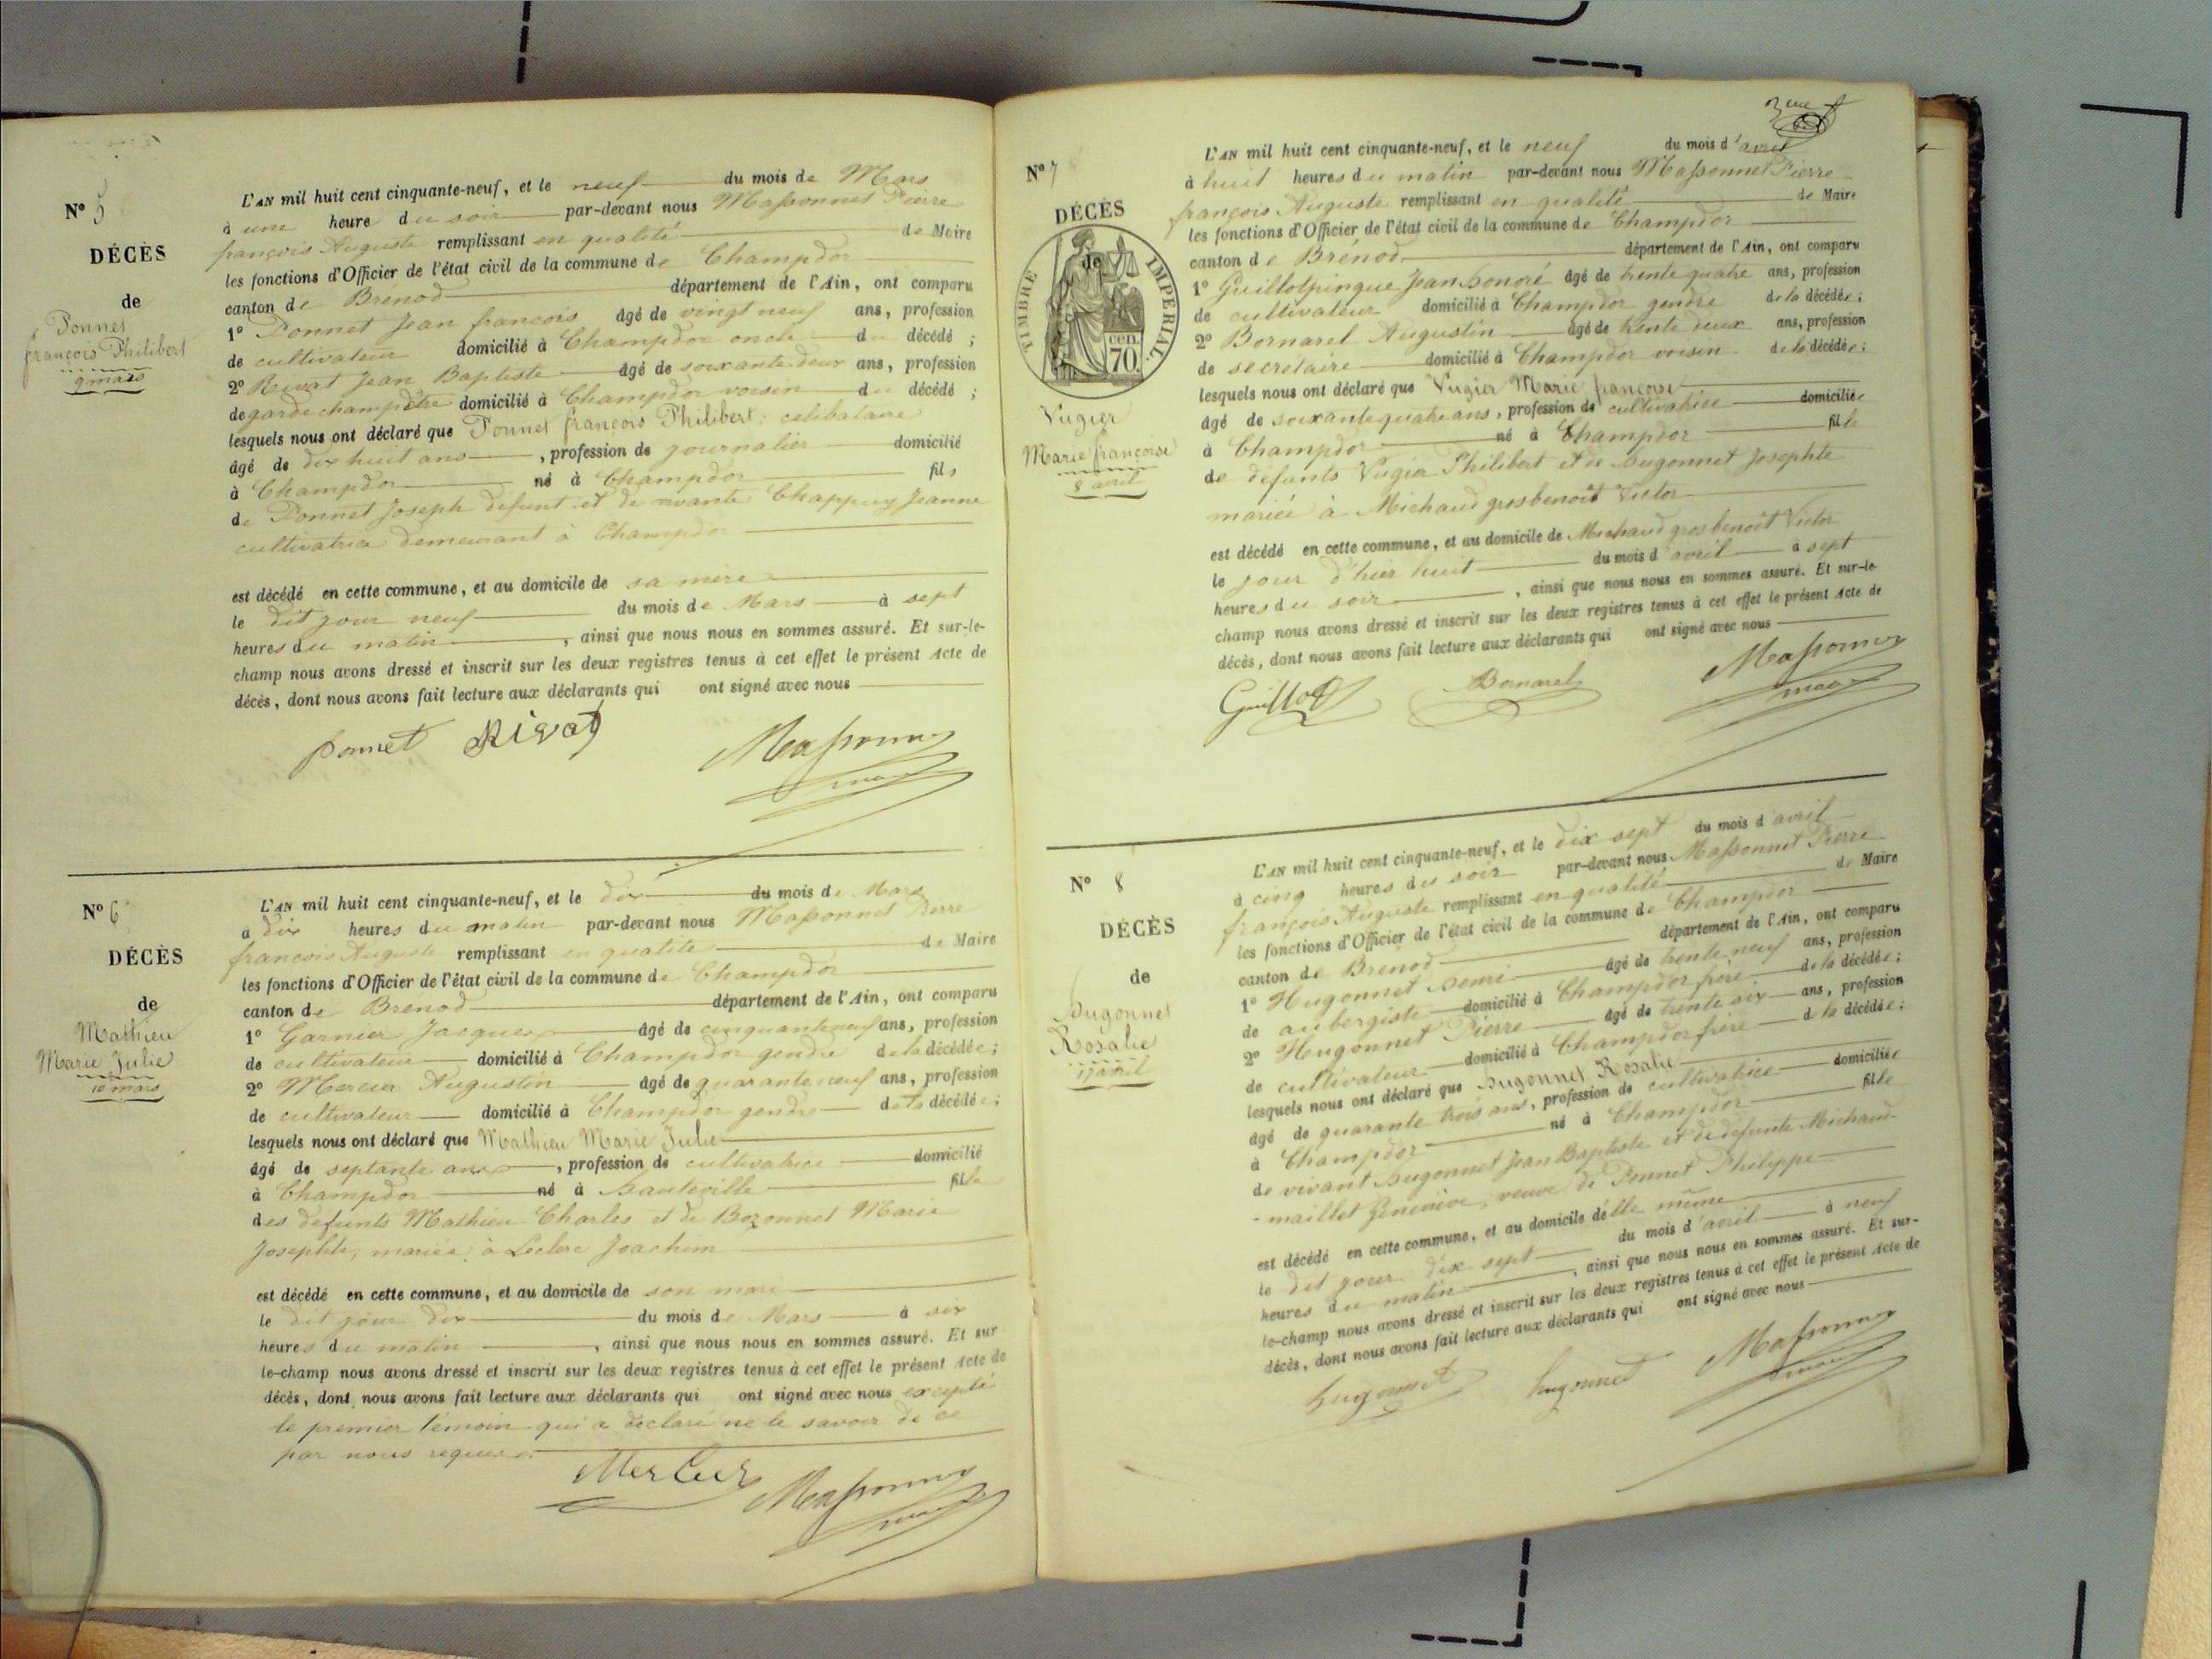 Nº 5
DÉCÈS
de
Ponnet
françois Philibert
9 mars
L'AN mil huit cent cinquante-neuf, et le neuf du mois de Mars
à une heure du soir par-devant nous Massonnet Pierre
françois Auguste remplissant en qualité de Maire
les fonctions d'Officier de l'état civil de la commune de Champdor
canton de Brénod département de l'Ain, ont comparu
1º Ponnet Jean françois âgé de vingt neuf ans, profession
de cultivateur domicilié à Champdor oncle du décédé ;
2º Rivat Jean Baptiste âgé de soixante deux ans, profession
de garde champêtre domicilié à Champdor voisin du décédé ;
lesquels nous ont déclaré que Ponnet françois Philibert, celibataire
âgé de dix huit ans , profession de journalier domicilié
à Champdor né à Champdor fils
de Ponnet Joseph défunt et de vivante Chappuy Jeanne
cultivatrice demeurant à Champdor
est décédé en cette commune, et au domicile de sa mère
le dit jour neuf du mois de Mars à sept
heures du matin , ainsi que nous nous en sommes assuré. Et sur-le-
champ nous avons dressé et inscrit sur les deux registres tenus à cet effet le présent Acte de
décès, dont nous avons fait lecture aux déclarants qui ont signé avec nous
ponnet Rivat Massonnet
maire
Nº 6
DÉCÈS
de
Mathieu
Marie Julie
10 mars
L'AN mil huit cent cinquante-neuf, et le dix du mois de Mars
à dix heures du matin par-devant nous Massonnet Pierre
francois Auguste remplissant en qualité de Maire
les fonctions d'Officier de l'état civil de la commune de Champdor
canton de Brénod département de l'Ain, ont comparu
1º Garnier Jacques âgé de cinquante neuf ans, profession
de cultivateur domicilié à Champdor gendre de la décédée ;
2º Mercier Augustin âgé de quarante neuf ans, profession
de cultivateur domicilié à Champdor gendre de la décédée ;
lesquels nous ont déclaré que Mathieu Marie Julie
âgé de septante ans , profession de cultivatrice domicilié
à Champdor né à hauteville fille
des defunts Mathieu Charles et de Bozonnet Marie
Josephte, mariée à Leclerc Joachim
est décédé en cette commune, et au domicile de son mari
le dit jour dix du mois de Mars à six
heures du matin , ainsi que nous nous en sommes assuré. Et sur
le-champ nous avons dressé et inscrit sur les deux registres tenus à cet effet le présent Acte de
décès, dont nous avons fait lecture aux déclarants qui ont signé avec nous excepté
le premier témoin qui a déclaré ne le savoir de ce
par nous requis.
Mercier Massonnet
maire
3me
Nº 7
DÉCÈS
de
TIMBRE IMPERIAL
70 cen.
Vugier
Marie françoise
8 avril
L'AN mil huit cent cinquante-neuf, et le neuf du mois d'avril
à huit heures du matin par-devant nous Massonnet Pierre
françois Auguste remplissant en qualité de Maire
les fonctions d'Officier de l'état civil de la commune de Champdor
canton de Brénod département de l'Ain, ont comparu
1º Guillotpingue Jean honoré âgé de trente quatre ans, profession
de cultivateur domicilié à Champdor gendre de la décédée ;
2º Bornarel Augustin âgé de trente deux ans, profession
de secrétaire domicilié à Champdor voisin de la décédée ;
lesquels nous ont déclaré que Vugier Marie françoise
âgé de soixante quatre ans, profession de cultivatrice domiciliée
à Champdor né à Champdor fille
de defunts Vugier Philibert et de hugonnet Josephte
mariée à Michaud grosbenoit Victor
est décédé en cette commune, et au domicile de Michaud grosbenoit Victor
le jour d'hier huit du mois d'avril à sept
heures du soir , ainsi que nous nous en sommes assuré. Et sur-le-
champ nous avons dressé et inscrit sur les deux registres tenus à cet effet le présent Acte de
décès, dont nous avons fait lecture aux déclarants qui ont signé avec nous
Guillot Bornarel Massonnet
maire
Nº 8
DÉCÈS
de
hugonnet
Rosalie
17 avril
L'AN mil huit cent cinquante-neuf, et le dix sept du mois d'avril
à cinq heures du soir par-devant nous Massonnet Pierre
françois Auguste remplissant en qualité de Maire
les fonctions d'Officier de l'état civil de la commune de Champdor
canton de Brénod département de l'Ain, ont comparu
1º Hugonnet henri âgé de trente neuf ans, profession
de aubergiste domicilié à Champdor frère de la décédée ;
2º Hugonnet Pierre âgé de trente six ans, profession
de cultivateur domicilié à Champdor frère de la décédée ;
lesquels nous ont déclaré que hugonnet Rosalie
âgé de quarante trois ans, profession de cultivatrice domiciliée
à Champdor né à Champdor fille
de vivant hugonnet Jean Baptiste et de defunte Michaud-
-maillet Geneviève, veuve de Ponnet Philippe
est décédé en cette commune, et au domicile d'elle même
le dit jour dix sept du mois d'avril à neuf
heures du matin , ainsi que nous nous en sommes assuré. Et sur-
le-champ nous avons dressé et inscrit sur les deux registres tenus à cet effet le présent Acte de
décès, dont nous avons fait lecture aux déclarants qui ont signé avec nous
hugonnet hugonnet Massonnet
maire